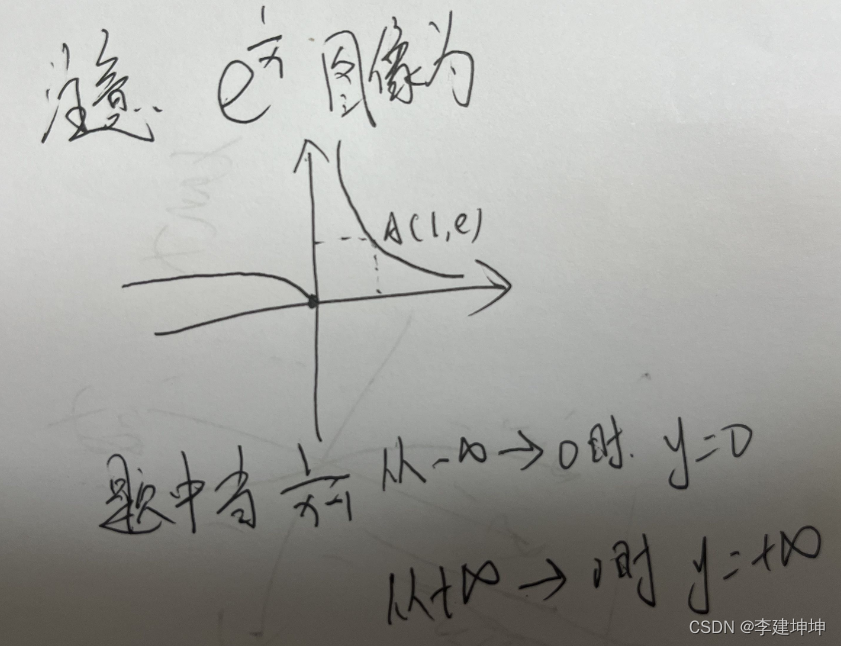 注意: e^{\frac{1}{x}} 图像为
A(1,e)
题中当 \frac{1}{x-1} 从-∞→0时. y=0
从+∞→0时 y=+∞
CSDN @李建坤坤